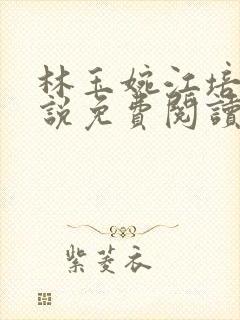 林玉婉江培
説免費閱讀
紫菱衣